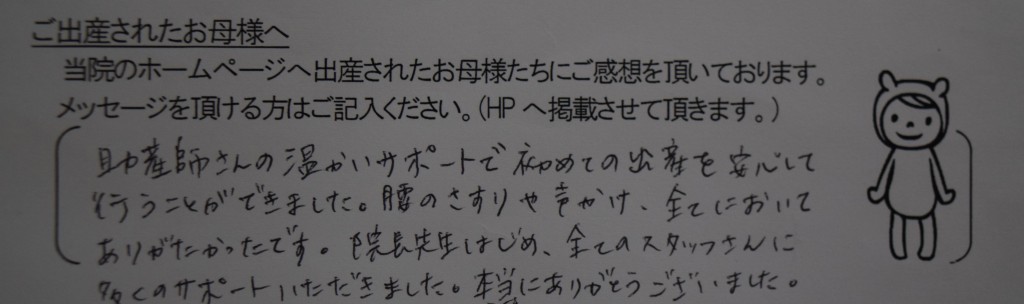 ご出産されたお母様へ
当院のホームページへ出産されたお母様たちにご感想を頂いております。
メッセージを頂ける方はご記入ください。(HPへ掲載させて頂きます。)
助産師さんの温かいサポートで初めての出産を安心して
行うことができました。腰のさすりや声かけ、全てにおいて
ありがたかったです。院長先生はじめ、全てのスタッフさんに
多くのサポートいただきました。本当にありがとうございました。